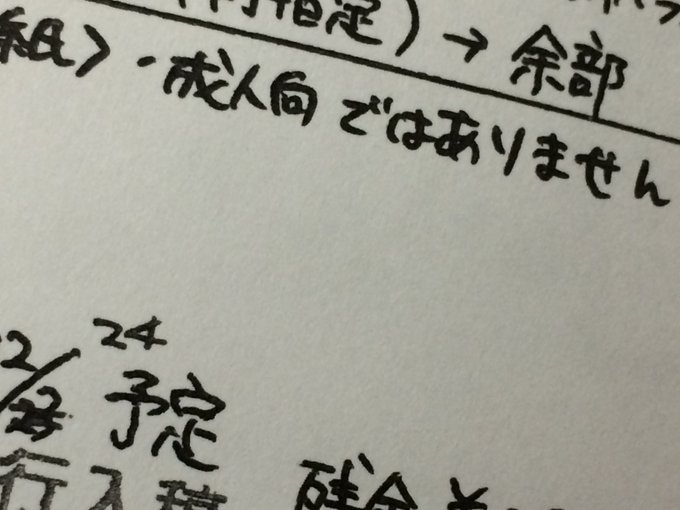 指定)→余部
紙〉・成人向ではありません
2/ 24
予定
行入稿 残金¥